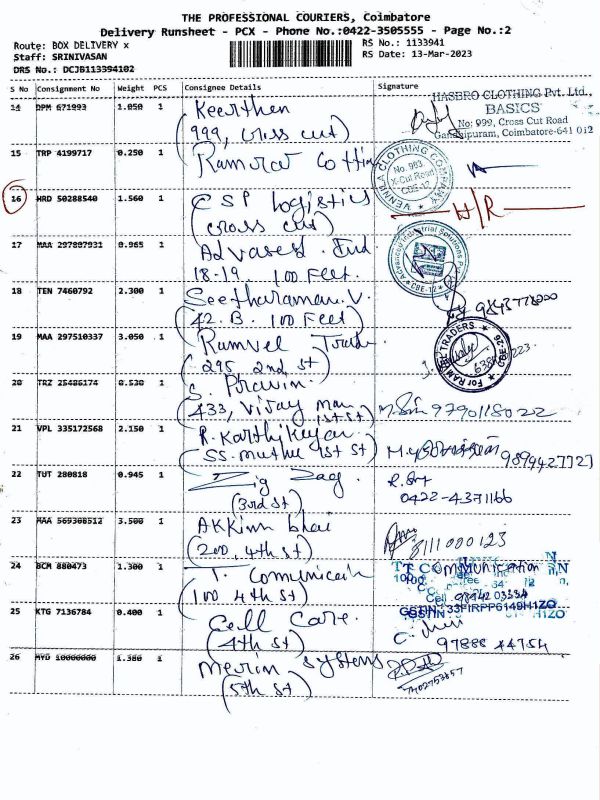 THE PROFESSIONAL COURIERS, Coimbatore
Delivery Runsheet - PCX - Phone No.:0422-3505555 - Page No.:2
Route: BOX DELIVERY x
RS No.: 1133941
Staff: SRINIVASAN
RS Date: 13-Mar-2023
DRS No.: DCJB113394102
S No Consignment No Weight PCS Consignee Details Signature
14 DPM 671993 1.050 1 Keerthen
(999, cross cut)
HASBRO CLOTHING Pvt. Ltd.,
BASICS
No: 999, Cross Cut Road
Gandhipuram, Coimbatore-641 012
15 TRP 4199717 0.250 1 Ramraj
VENNILA CLOTHING COMPANY
No. 983,
X-Cut Road
CBE-12
16 HRD 50288540 1.560 1 CSP Logistics H/R
(cross cut)
17 MAA 297807931 0.965 1 Advanced Ind
18-19. 100 Feet.
Advanced Industrial Solutions
CBE-12
18 TEN 7460792 2.300 1 Seetharaman.V.
(42.B. 100 Feet)
19 MAA 297510337 3.050 1 Ramvel
(295, 2nd st)
For RAMVEL TRADERS
20 TRZ 25486174 0.530 1 S. Pravin.
(433, Vijay 1st st) 9790118022
21 VPL 335172568 2.150 1 R. Karthikeyan
(SS. muthu 1st st)
22 TUT 280818 0.945 1 Zig Zag.
(3rd st) 0422-4371166
23 MAA 569308512 3.500 1 AKKinn bhai
(200, 4th st) 8111000123
24 BCM 880473 1.300 1 T. Comunicain
(100 4th st)
Communication
Cell 9894203534
GSTIN : 33FIRPP6149H1ZO
25 KTG 7136784 0.400 1 Cell Care.
(4th st) 97888 44754
26 MYD 10000000 1.380 1 Merin Systems
(5th st) 7402753857